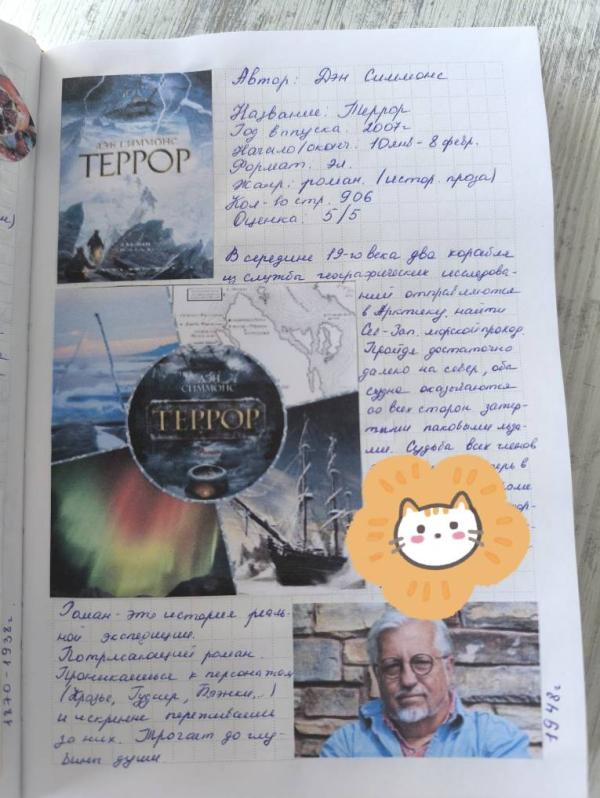 Автор: Дэн Симмонс
Название: Террор
Год выпуска: 2007г
Начало/оконч: 10 янв - 8 февр.
Формат: эл.
Жанр: роман. (истор. проза)
Кол-во стр. 906
Оценка: 5/5
ДЭН СИММОНС
ТЕРРОР
В середине 19-го века два корабля
из службы географических исследова-
ний отправляются
в Арктику, найти
Сев-Зап. морской проход.
Пройдя достаточно
далеко на север, оба
судна оказываются
со всех сторон затёр-
тыми паковыми льда-
ми. Судьба всех членов
ДЭН
СИММОНС
ТЕРРОР
Роман - это история реаль-
ной экспедиции.
Потрясающий роман.
Проникаешься к персонажам
(Крозье, Гудсир, Блэнки,..)
и искренне переживаешь
за них. Трогает до глу-
бины души
1948г
1870-1938г.